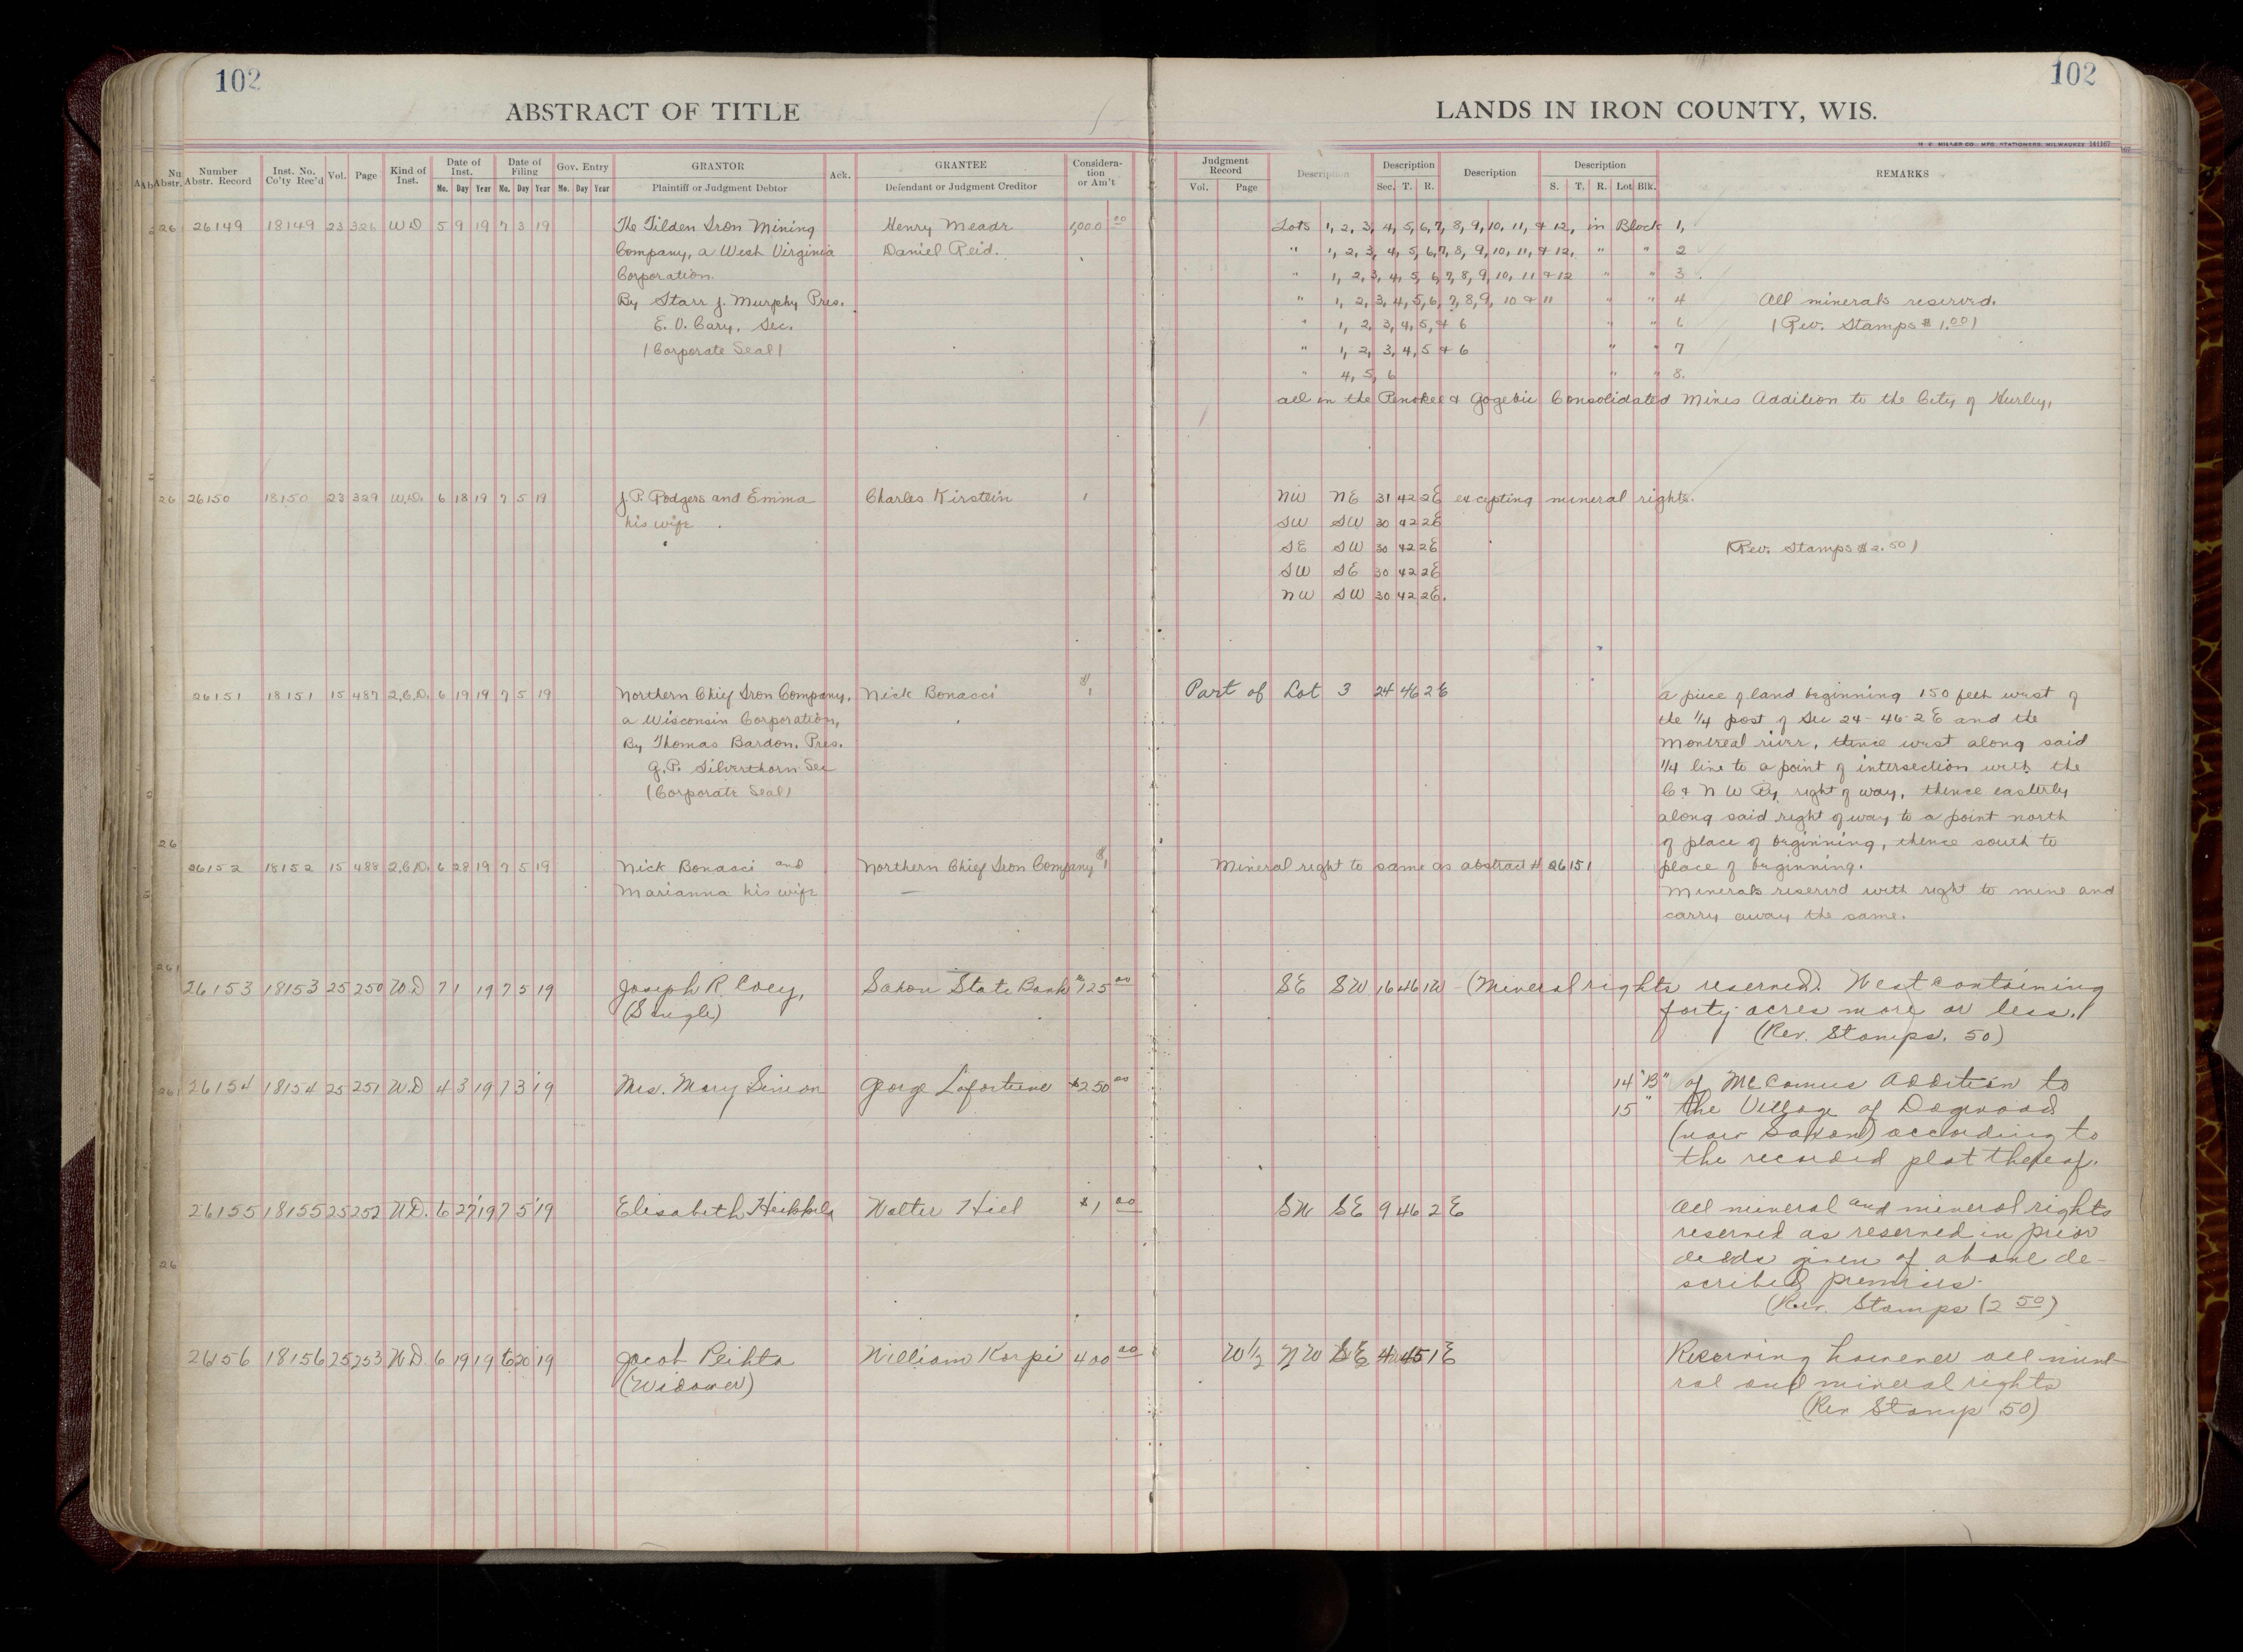 102
102
ABSTRACT OF TITLE
LANDS IN IRON COUNTY, WIS.
Number Abstr. Record Inst. No. Co'ty Rec'd Vol. Page Kind of Inst. Date of Inst. Mo. Day Year Date of Filing Mo. Day Year Gov. Entry Mo. Day Year GRANTOR Plaintiff or Judgment Debtor Ack. GRANTEE Defendant or Judgment Creditor Considera-tion or Am't
Judgment Record Vol. Page Description Description Sec. T. R. Description Description S. T. R. Lot Blk. REMARKS
26149 18149 23 326 W.D 5 9 19 7 3 19 The Tilden Iron Mining Henry Meadr 1,000 00 Lots 1, 2, 3, 4, 5, 6, 7, 8, 9, 10, 11, & 12, in Block 1,
Company, a West Virginia Daniel Reid. " 1, 2, 3, 4, 5, 6, 7, 8, 9, 10, 11, & 12, " " 2
Corporation. " 1, 2, 3, 4, 5, 6, 7, 8, 9, 10, 11 & 12 " " 3
By Starr J. Murphy Pres. " 1, 2, 3, 4, 5, 6, 7, 8, 9, 10 & 11 " " 4 All minerals reserved.
E. V. Cary, Sec. " 1, 2, 3, 4, 5, & 6 " " 6 (Rev. Stamps $1.00)
(Corporate Seal) " 1, 2, 3, 4, 5 & 6 " " 7
" 4, 5, 6 " " 8.
all in the Penokee & Gogebic Consolidated Mines Addition to the City of Hurley,
26150 18150 23 329 W.D. 6 18 19 7 5 19 J. P. Podgers and Emma Charles Kirstein 1 NW NE 31 42 2E excepting mineral rights.
his wife SW SW 30 42 2E
SE SW 30 42 2E (Rev. Stamps $2.50)
SW SE 30 42 2E
NW SW 30 42 2E.
26151 18151 15 487 2.C.D. 6 19 19 7 5 19 Northern Chief Iron Company, Nick Bonacci $1 Part of Lot 3 24 46 2E a piece of land beginning 150 feet west of
a Wisconsin Corporation, the 1/4 post of Sec 24-46-2E and the
By Thomas Bardon, Pres. Montreal river, thence west along said
G. P. Silverthorn Sec 1/4 line to a point of intersection with the
(Corporate Seal) C & N W Ry right of way, thence easterly
along said right of way to a point north
of place of beginning, thence south to
26152 18152 15 488 2.C.D. 6 28 19 7 5 19 Nick Bonacci and Northern Chief Iron Company $1 Mineral right to same as abstract # 26151 place of beginning.
Marianna his wife Minerals reserved with right to mine and
carry away the same.
26153 18153 25 250 W.D 7 1 19 7 5 19 Joseph R. Coey, Saxon State Bank $725 00 SE SW 16 46 1W (Mineral rights reserved). West containing
(Single) forty acres more or less.
(Rev. Stamps. 50)
26154 18154 25 251 W.D 4 3 19 7 3 19 Mrs. Mary Simon George Lafortune $250 00 14 "B" of McComus Addition to
15 " the Village of Dogwood
(now Saxon) according to
the recorded plat thereof.
26155 18155 25 252 W.D. 6 27 19 7 5 19 Elisabeth Heikkila Walter Hiel $1 00 SW SE 9 46 2 E All mineral and mineral rights
reserved as reserved in prior
deeds given of above de-
scribed premises.
(Rev. Stamps (2 50)
26156 18156 25 253 W.D. 6 19 19 6 20 19 Jacob Peihta William Korpi 400 00 W1/2 NW SE 4 45 1 E Reserving however all mine-
(Widower) ral and mineral rights
(Rev Stamp 50)